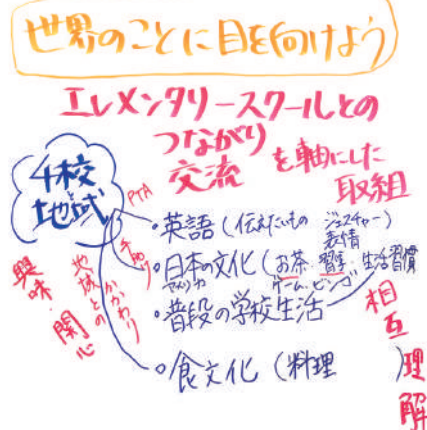 世界のことに目を向けよう
エレメンタリースクールとの
つながり
交流
を軸にした
取組
学校
と
地域
PTA
・英語(伝えたいもの ジェスチャー)
表情
・日本の文化(お茶・習字・生活習慣
アメリカ
ゲーム・ビンゴ
・普段の学校生活
・食文化(料理 )
地域との
かかわり
興味・関心
相互理解